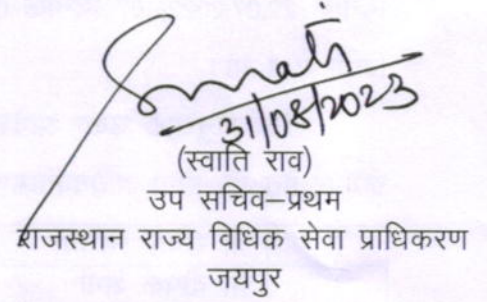 Swati
31/08/2023
(स्वाति राव)
उप सचिव–प्रथम
राजस्थान राज्य विधिक सेवा प्राधिकरण
जयपुर